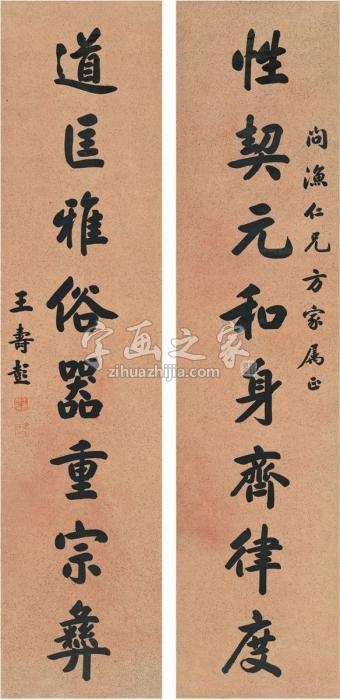 性契元和身齊律度
問漁仁兄方家屬正
道匡雅俗器重宗彝
王壽彭
字画之家
zihuazhijia.com